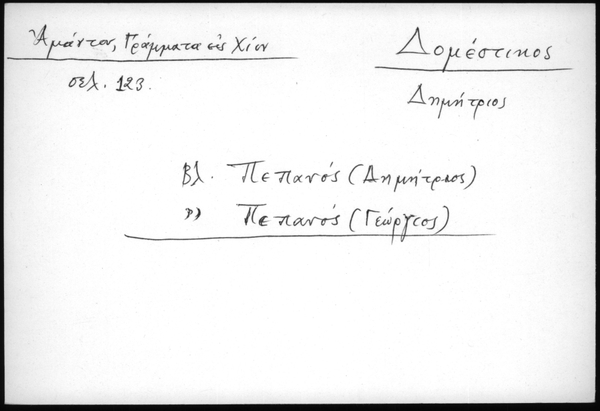 Ἀμάντου, Γράμματα εἰς Χίον
σελ. 123.
Δομέστικος
Δημήτριος
Βλ. Πεπανός (Δημήτριος)
» Πεπανός (Γεώργιος)